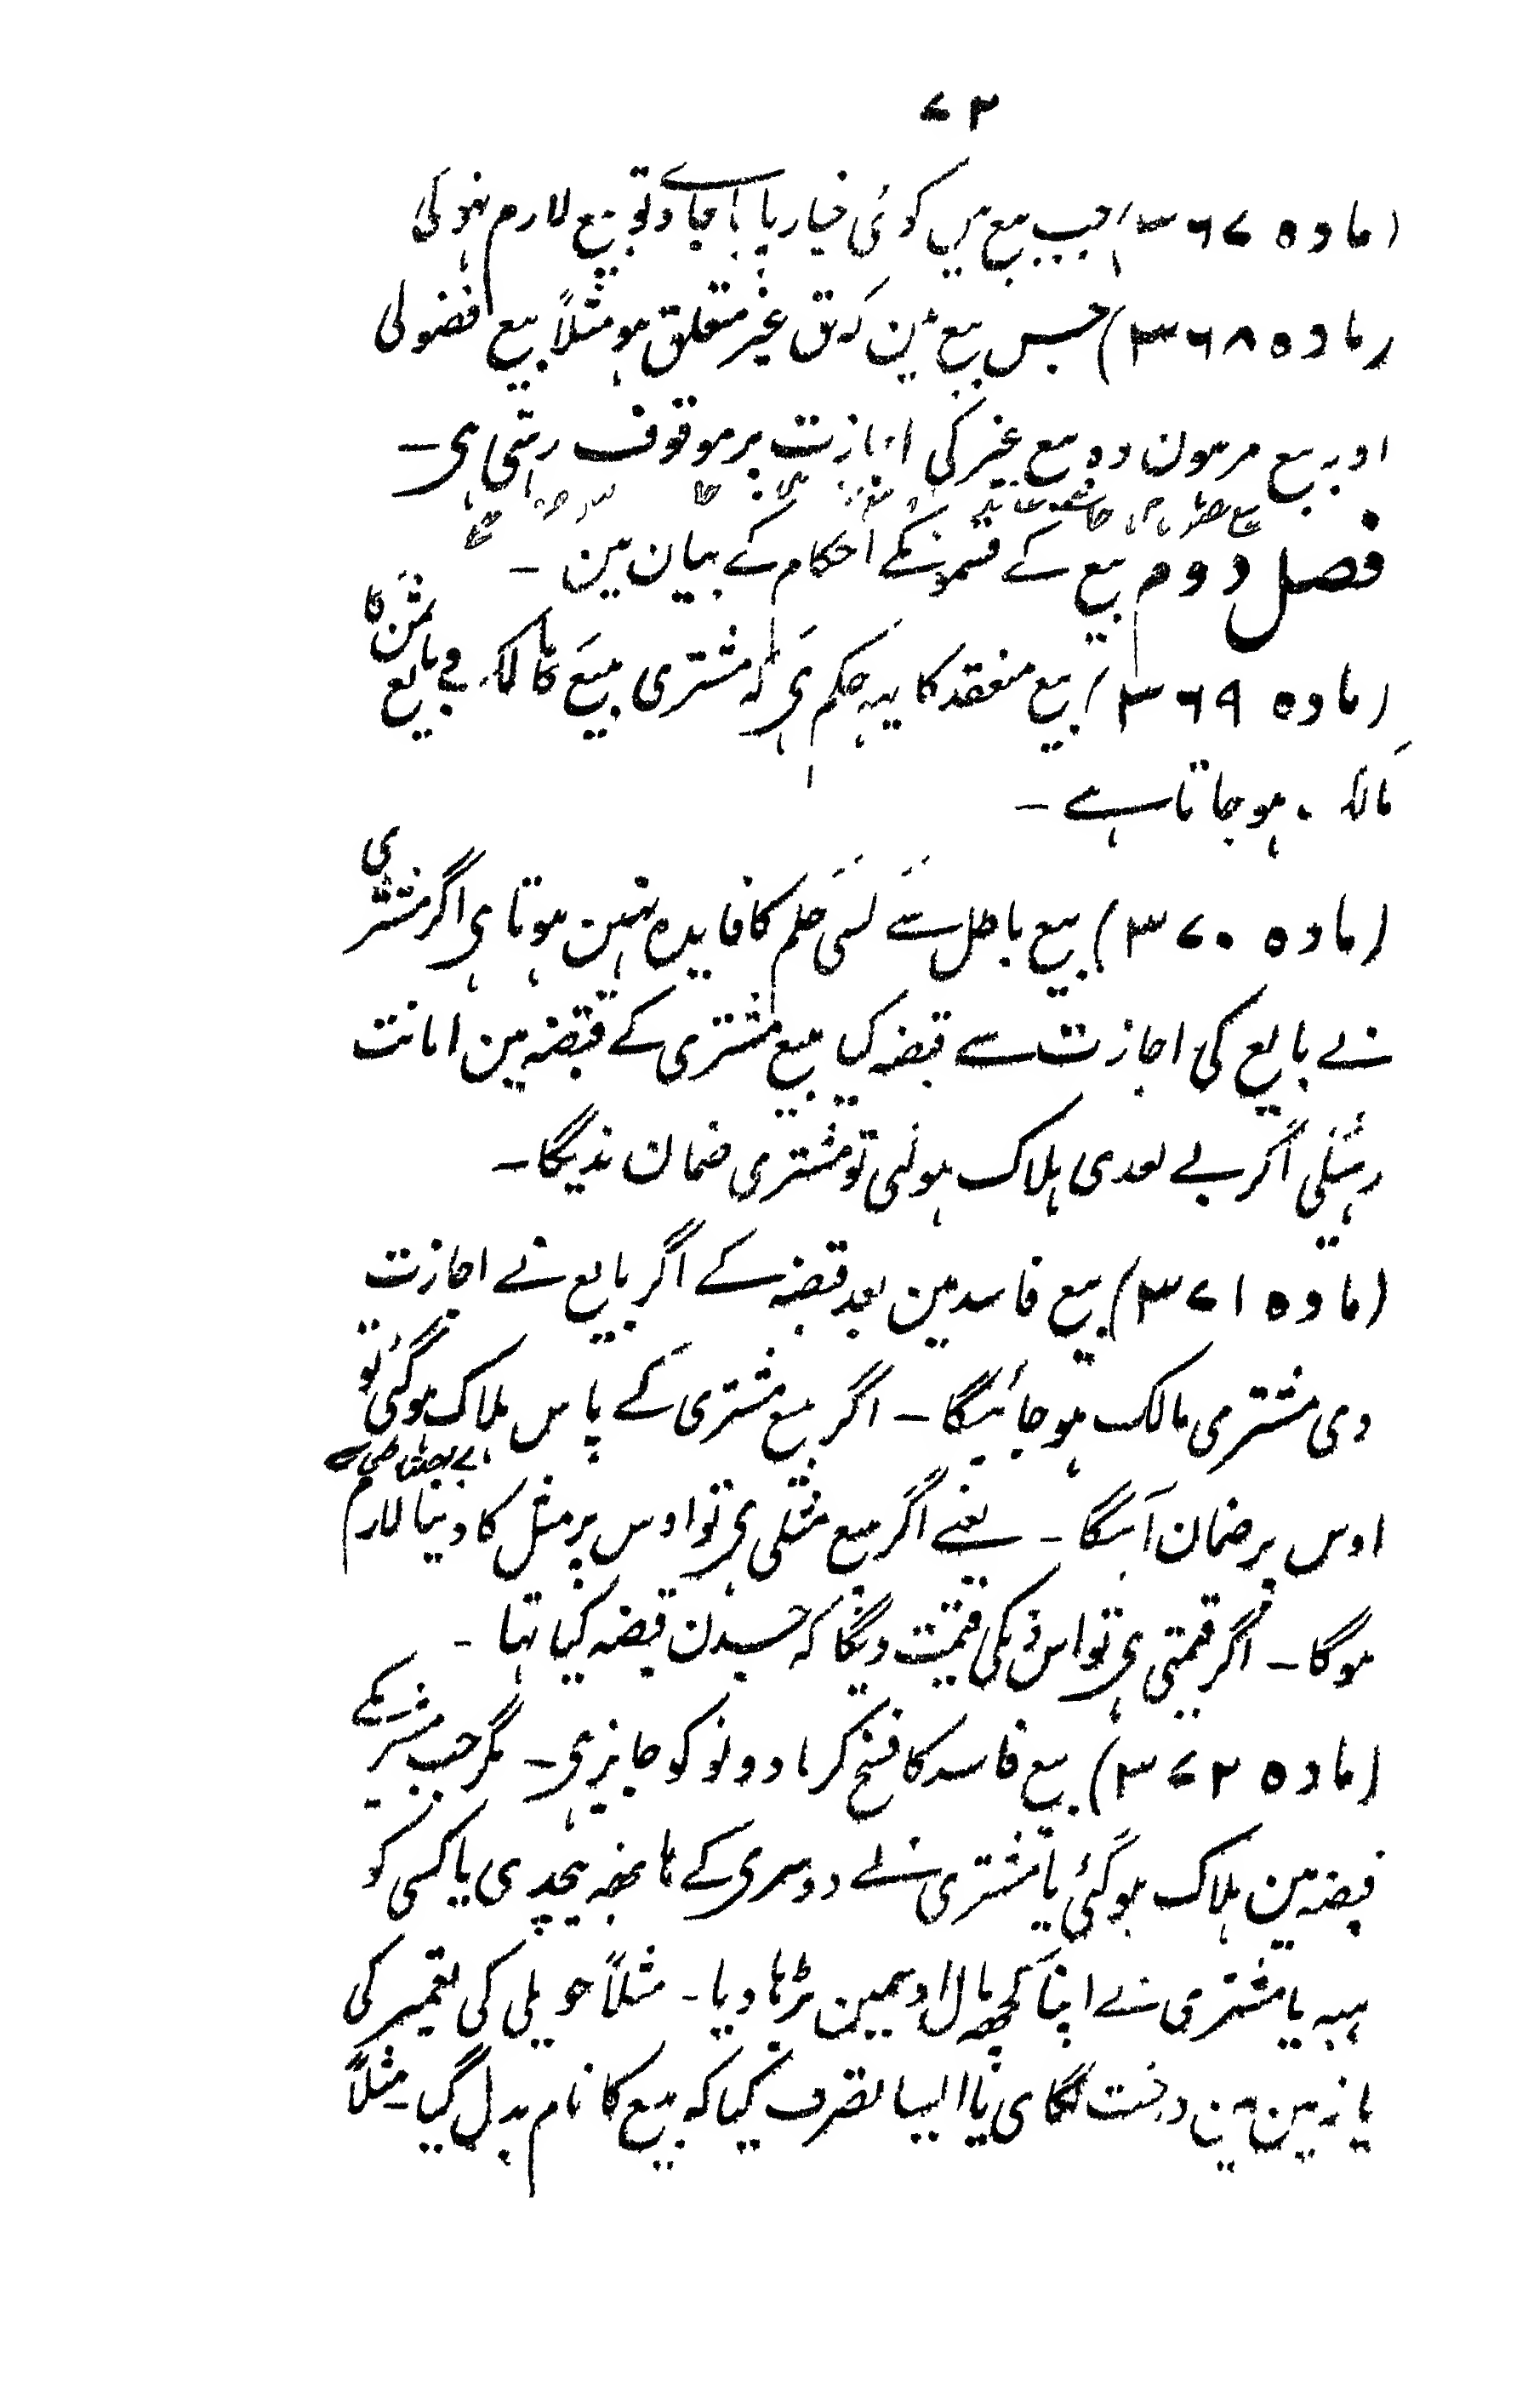 ۷۲
(مادہ ۳۶۷) جب بیع میں کوئی خیار پایا جاوے تو بیع لازم نہوگی
(مادہ ۳۶۸) جس بیع مین کہ حق غیر متعلق ہو مثلاً بیع فضولی
اور بیع مرہون وہ بیع غیر کی اجازت پر موقوف رہتی ہی۔
فصل دوم بیع کے قسمونکے احکام کے بیان مین ۔
(مادہ ۳۶۹) بیع منعقد کا یہہ حکم ہی کہ مشتری مبیع کا مالک و بایع ثمن کا
مالک ہوجاتا ہے ۔
(مادہ ۳۷۰) بیع باطل سے کسی حکم کا فایدہ نہین ہوتا ہی اگر مشتری
نے بایع کی اجازت سے قبضہ کیا مبیع مشتری کے قبضہ مین امانت
رہیگی اگر بے تعدی ہلاک ہوئی تو مشتری ضمان ندیگا۔
(مادہ ۳۷۱) بیع فاسد مین بعد قبضہ کے اگر بایع نے اجازت
دی مشتری مالک ہوجائیگا ۔ اگر مبیع مشتری کے پاس ہلاک ہوگئی تو
اوس پر ضمان آئیگا ۔ یعنے اگر مبیع مثلی ہی تو اوس پر مثل کا دینا لازم
ہوگا ۔ اگر قیمتی ہی تو اس دنکی قیمت دیگا کہ جسدن قبضہ کیا تہا ۔
(مادہ ۳۷۲) بیع فاسد کا فسخ کرنا دونو کو جایز ہی۔ مگر جب مشتریکے
قبضہ مین ہلاک ہوگئی یا مشتری نے دوسری کے ہاتھہ بیچدی یا کسی کو
ہبہ یا مشتری نے اپنا کچھہ مال اوسمین بڑہا دیا۔ مثلاً حویلی کی تعمیر کی
یا زمین مین درخت لگای یا ایسا تصرف کیا کہ مبیع کا نام بدل گیا۔ مثلاً